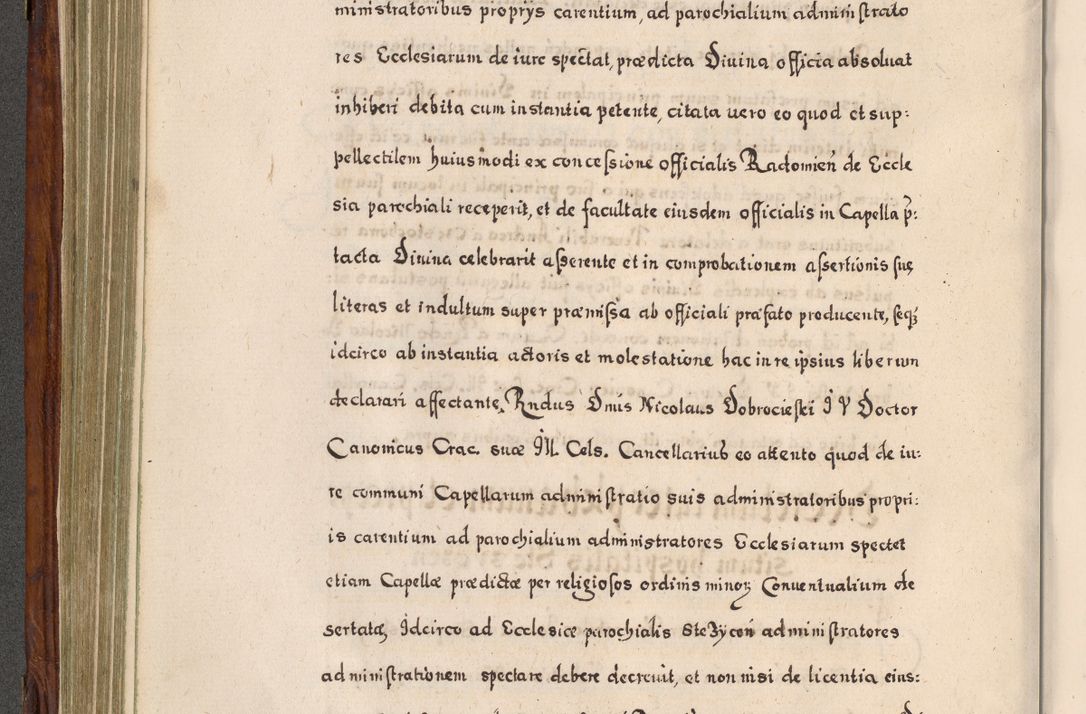 ministratoribus proprÿs carentium, ad parochialium administrato
res Ecclesiarum de iure spectat, prædicta Diuina officia absoluat
inhiberi debita cum instantia petente, citata uero eo quod et sup:
pellectilem huiusmodi ex concessione officialis Radomień de Eccle
sia parochiali receperit, et de facultate eiusdem officialis in Capella p̃:
tacta Diuina celebrarit asserente et in comprobationem assertionis suę
literas et indultum super præmissa ab officiali præfato producente, seqꝫ
idcirco ab instantia actoris et molestatione hac in re ipsius liberum
declarari affectante, Rndus Dnus Nicolaus Dobrocieski I V Doctor
Canonicus Crac. suæ Ill. Cels. Cancellarius eo attento quod de iu:
re communi Capellarum administratio suis administratoribus propri:
is carentium ad parochialium administratores Ecclesiarum spectet
etiam Capellæ prædictæ per religiosos ordinis minoꝝ Conuentualium de
sertatæ, Idcirco ad Ecclesiæ parochialis Steżycen̄ administratores
administrationem spectare debere decreuit, et non nisi de licentia eius: